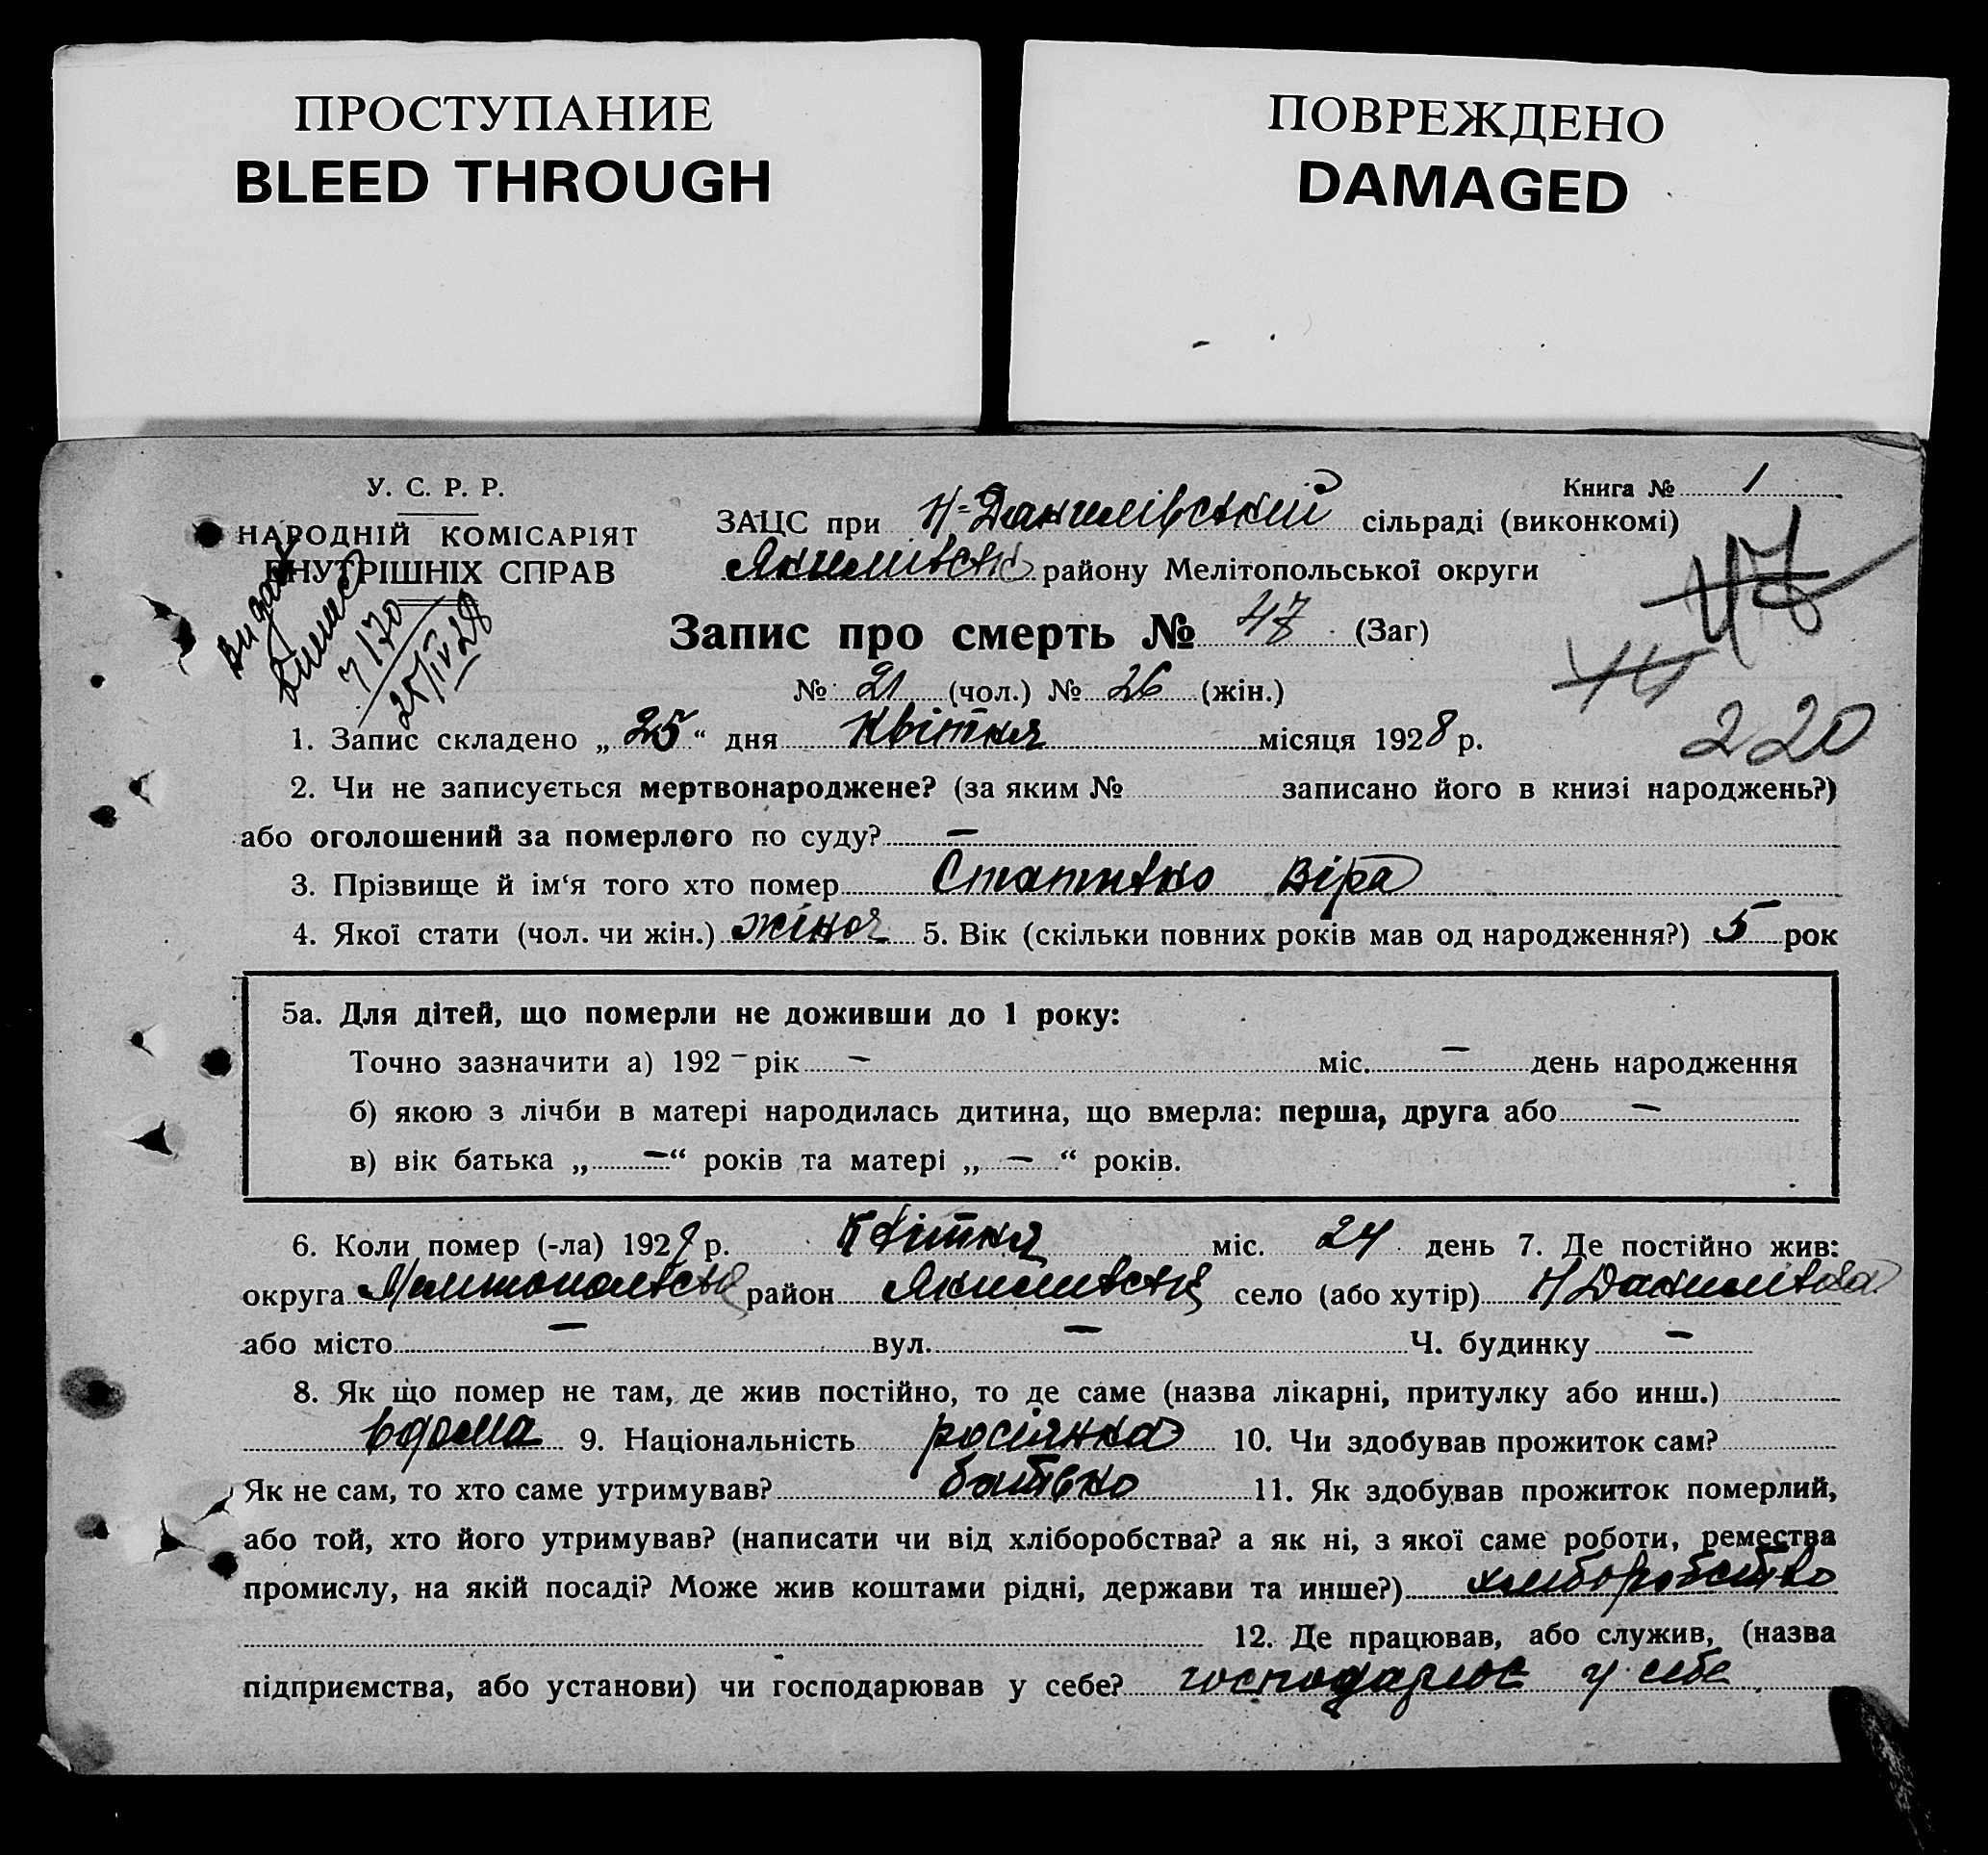 ПРОСТУПАНИЕ
BLEED THROUGH
ПОВРЕЖДЕНО
DAMAGED
У. С. Р. Р.
НАРОДНІЙ КОМІСАРІЯТ
ВНУТРІШНІХ СПРАВ
Видана
7/170
25/IV 28
Книга № 1
ЗАЦС при Н-Данилівський сільраді (виконкомі)
Якимівськ району Мелітопольської округи
47
Запис про смерть № 47 (Заг)
44
№ 21 (чол.) № 26 (жін.)
220
1. Запис складено „ 25 “ дня Квітня місяця 1928 р.
2. Чи не записується мертвонароджене? (за яким № записано його в книзі народжень?)
або оголошений за померлого по суду? —
3. Прізвище й ім‘я того хто помер Стативко Віра
4. Якої стати (чол. чи жін.) жіноч 5. Вік (скільки повних років мав од народження?) 5 рок
5а. Для дітей, що померли не доживши до 1 року:
Точно зазначити а) 192 – рік — міс. — день народження
б) якою з лічби в матері народилась дитина, що вмерла: перша, друга або —
в) вік батька „ — “ років та матері „ — “ років.
6. Коли помер (-ла) 1928 р. Квітня міс. 24 день 7. Де постійно жив:
округа Мелитопольськ район Якимівськ село (або хутір) Н Данилівка
або місто — вул. — Ч. будинку —
8. Як що помер не там, де жив постійно, то де саме (назва лікарні, притулку або инш.)
вдома 9. Національність росіянка 10. Чи здобував прожиток сам?
Як не сам, то хто саме утримував? батько 11. Як здобував прожиток померлий,
або той, хто його утримував? (написати чи від хліборобства? а як ні, з якої саме роботи, ремества
промислу, на якій посаді? Може жив коштами рідні, держави та инше?) хліборобство
12. Де працював, або служив, (назва
підприємства, або установи) чи господарював у себе? господарює у себе